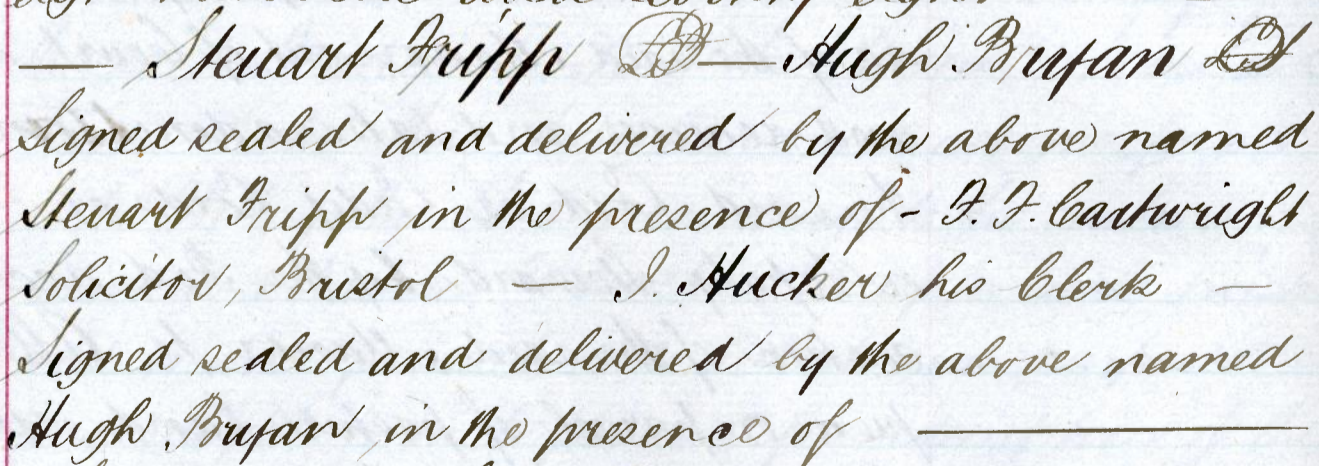 — Steuart Fripp LS — Hugh Bryan LS
Signed sealed and delivered by the above named
Steuart Fripp in the presence of - F. F. Cartwright
Solicitor, Bristol — J. Hucker his Clerk —
Signed sealed and delivered by the above named
Hugh Bryan in the presence of —